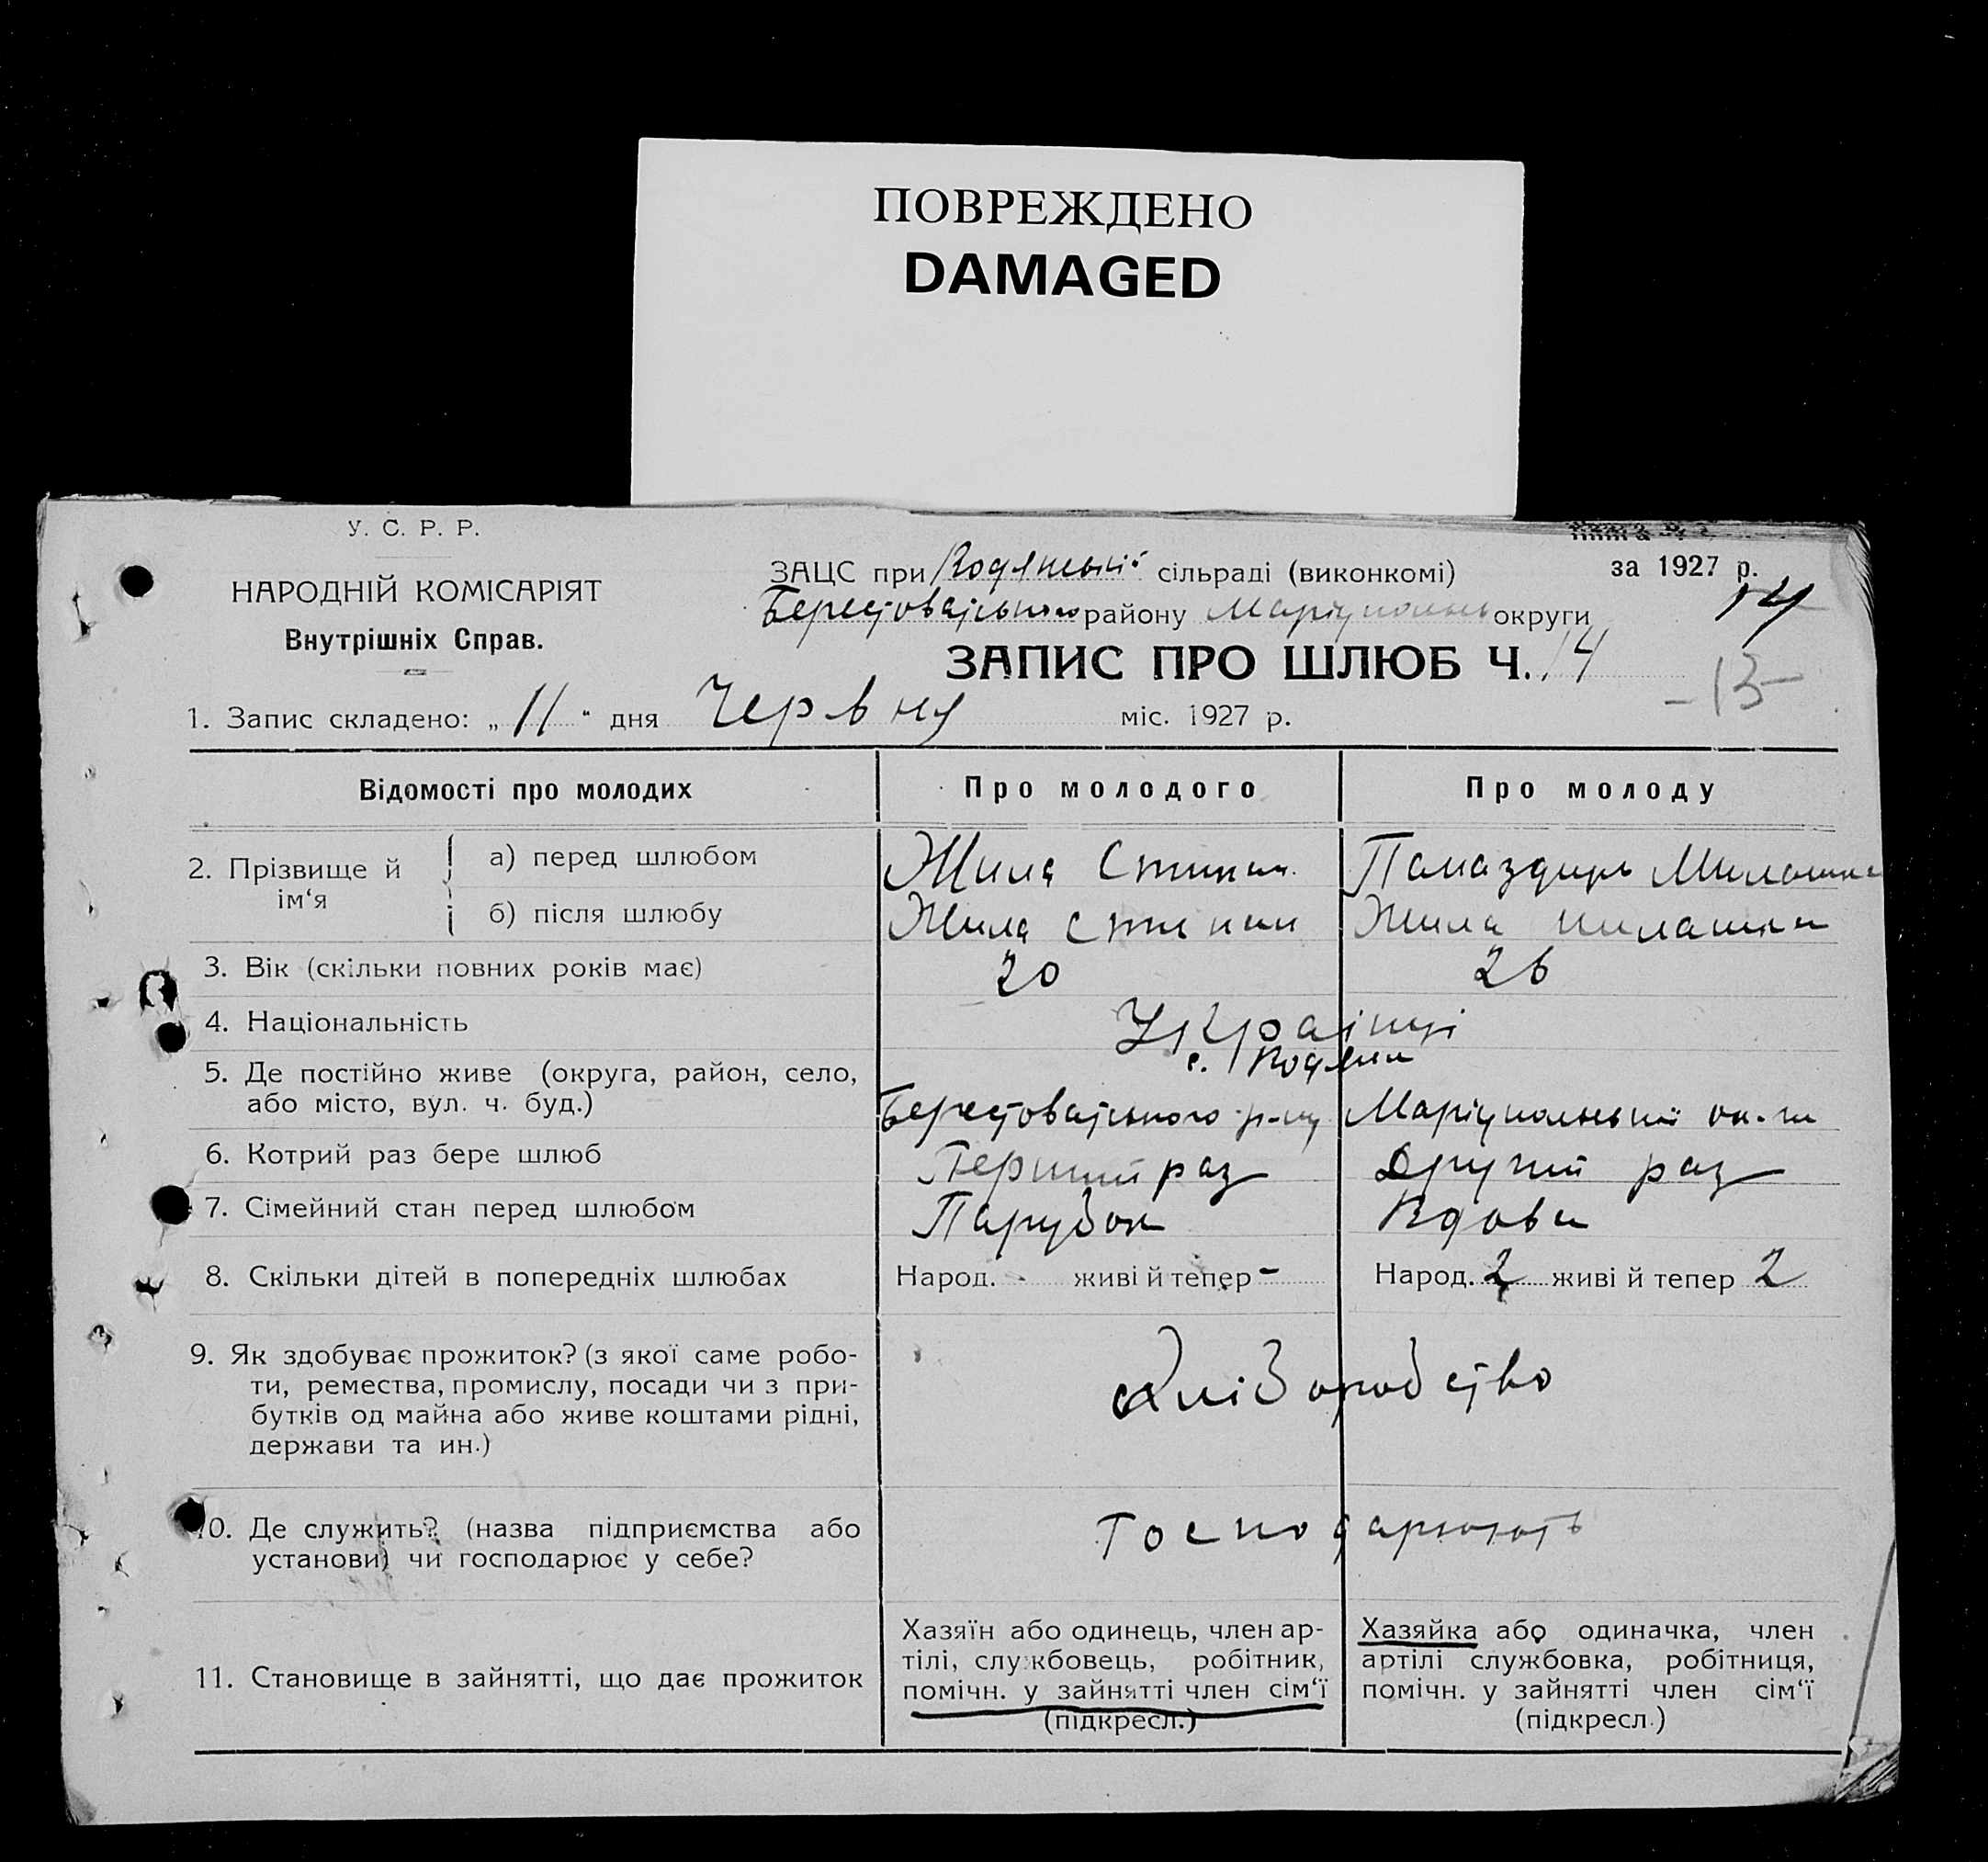 ПОВРЕЖДЕНО
DAMAGED
У. С. Р. Р.
НАРОДНІЙ КОМІСАРІЯТ
Внутрішніх Справ.
ЗАЦС при Кодянській сільраді (виконкомі)
за 1927 р.
Берестоватського району Маріупольськ округи
14
ЗАПИС ПРО ШЛЮБ Ч. 14
-13-
1. Запис складено: „ 11 “ дня Червня міс. 1927 р.
Відомості про молодих
Про молодого
Про молоду
2. Прізвище й ім‘я
а) перед шлюбом
Жила Степан
Памаздирь Милашка
б) після шлюбу
Жила Степан
Жила Милашка
3. Вік (скільки повних років має)
20
26
4. Національність
Українці
5. Де постійно живе (округа, район, село,
або місто, вул. ч. буд.)
с. Кодяни
Берестоватського р-ну Маріупольської ок-ги
6. Котрий раз бере шлюб
Перший раз
Другий раз
7. Сімейний стан перед шлюбом
Парубок
Вдова
8. Скільки дітей в попередніх шлюбах
Народ. - живі й тепер -
Народ. 2 живі й тепер 2
9. Як здобуває прожиток? (з якої саме робо-
ти, ремества, промислу, посади чи з при-
бутків од майна або живе коштами рідні,
держави та ин.)
Хліборобство
10. Де служить? (назва підприємства або
установи) чи господарює у себе?
Господарюють
11. Становище в зайнятті, що дає прожиток
Хазяїн або одинець, член ар-
тілі, службовець, робітник,
помічн. у зайнятті член сім‘ї
(підкресл.)
Хазяйка або одиначка, член
артілі службовка, робітниця,
помічн. у зайнятті член сім‘ї
(підкресл.)